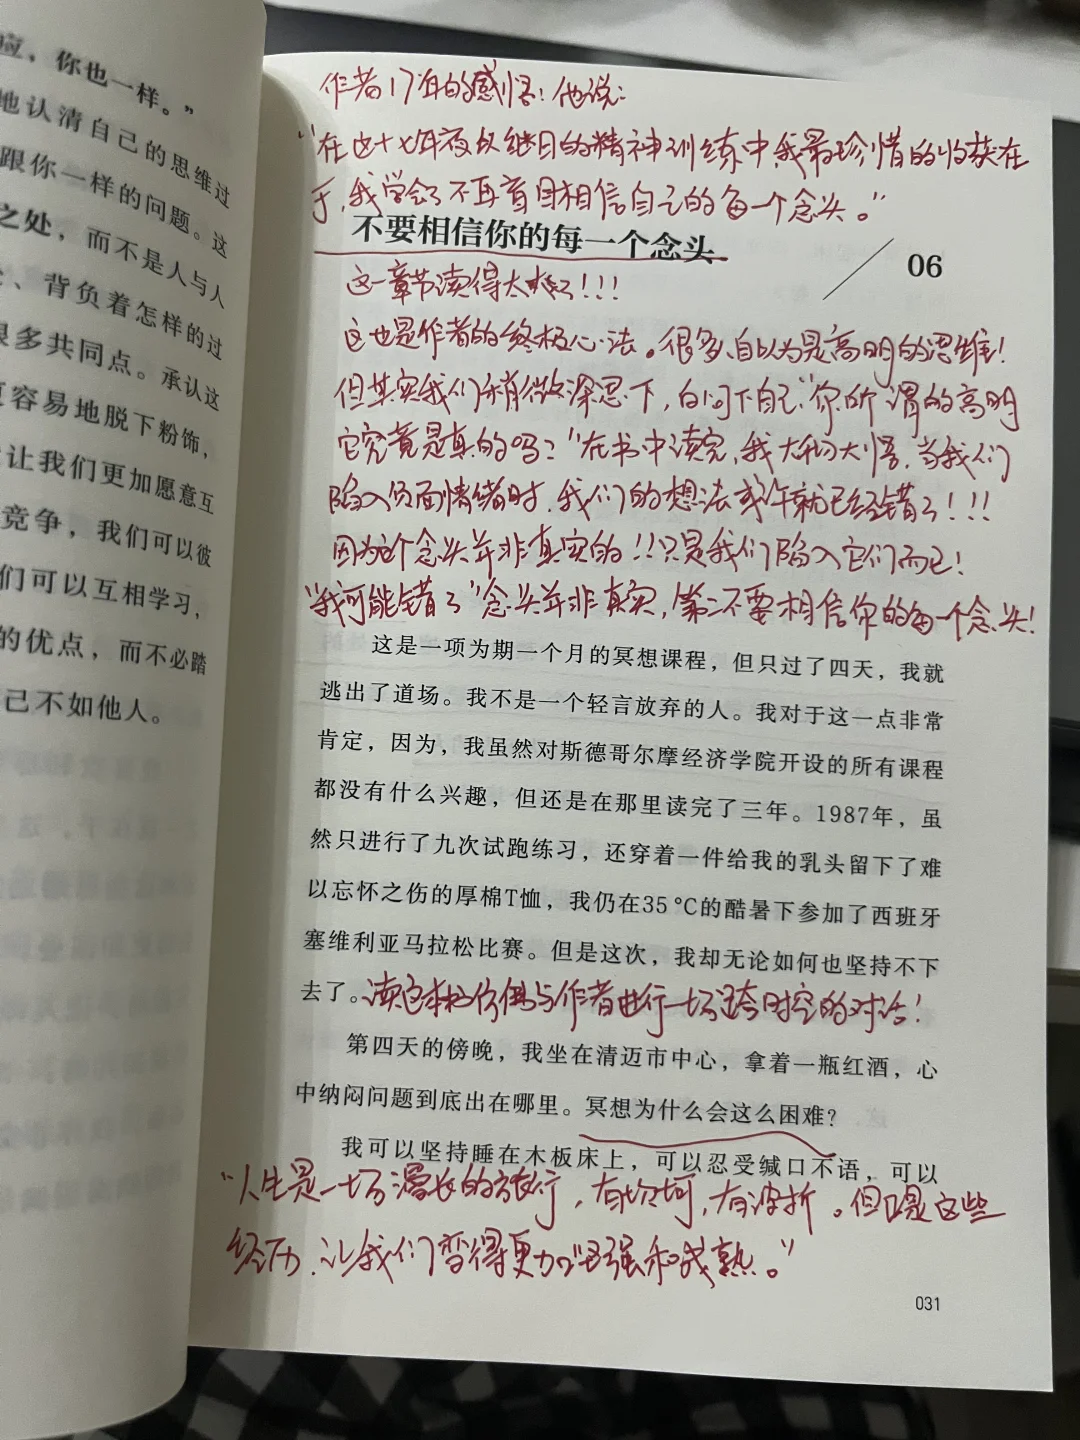 应，你也一样。”
地认清自己的思维过
跟你一样的问题。这
之处，而不是人与人
、背负着怎样的过
很多共同点。承认这
更容易地脱下粉饰，
让我们更加愿意互
竞争，我们可以彼
们可以互相学习，
的优点，而不必踏
己不如他人。
作者17年的感悟！他说：
“在这十七年夜以继日的精神训练中，我最珍惜的收获在
于，我学会了不再盲目相信自己的每一个念头。”
不要相信你的每一个念头
06
这一章节读得太爽了！！！
这也是作者的终极心法。很多自以为是高明的思维！
但其实我们稍微深思下，自问下自己：“你所谓的高明
它究竟是真的吗？”在书中读完，我大彻大悟，当我们
陷入负面情绪时，我们的想法或许就已经错了！！！
因为这个念头并非真实的！！只是我们陷入它们而已！
“我可能错了”念头并非真实，第二不要相信你的每一个念头！
这是一项为期一个月的冥想课程，但只过了四天，我就
逃出了道场。我不是一个轻言放弃的人。我对于这一点非常
肯定，因为，我虽然对斯德哥尔摩经济学院开设的所有课程
都没有什么兴趣，但还是在那里读完了三年。1987年，虽
然只进行了九次试跑练习，还穿着一件给我的乳头留下了难
以忘怀之伤的厚棉T恤，我仍在35℃的酷暑下参加了西班牙
塞维利亚马拉松比赛。但是这次，我却无论如何也坚持不下
去了。读这本书仿佛与作者进行一场跨时空的对话！
第四天的傍晚，我坐在清迈市中心，拿着一瓶红酒，心
中纳闷问题到底出在哪里。冥想为什么会这么困难？
我可以坚持睡在木板床上，可以忍受缄口不语，可以
“人生是一场漫长的旅行，有坎坷，有波折。但正是这些
经历，让我们变得更加坚强和成熟。”
031